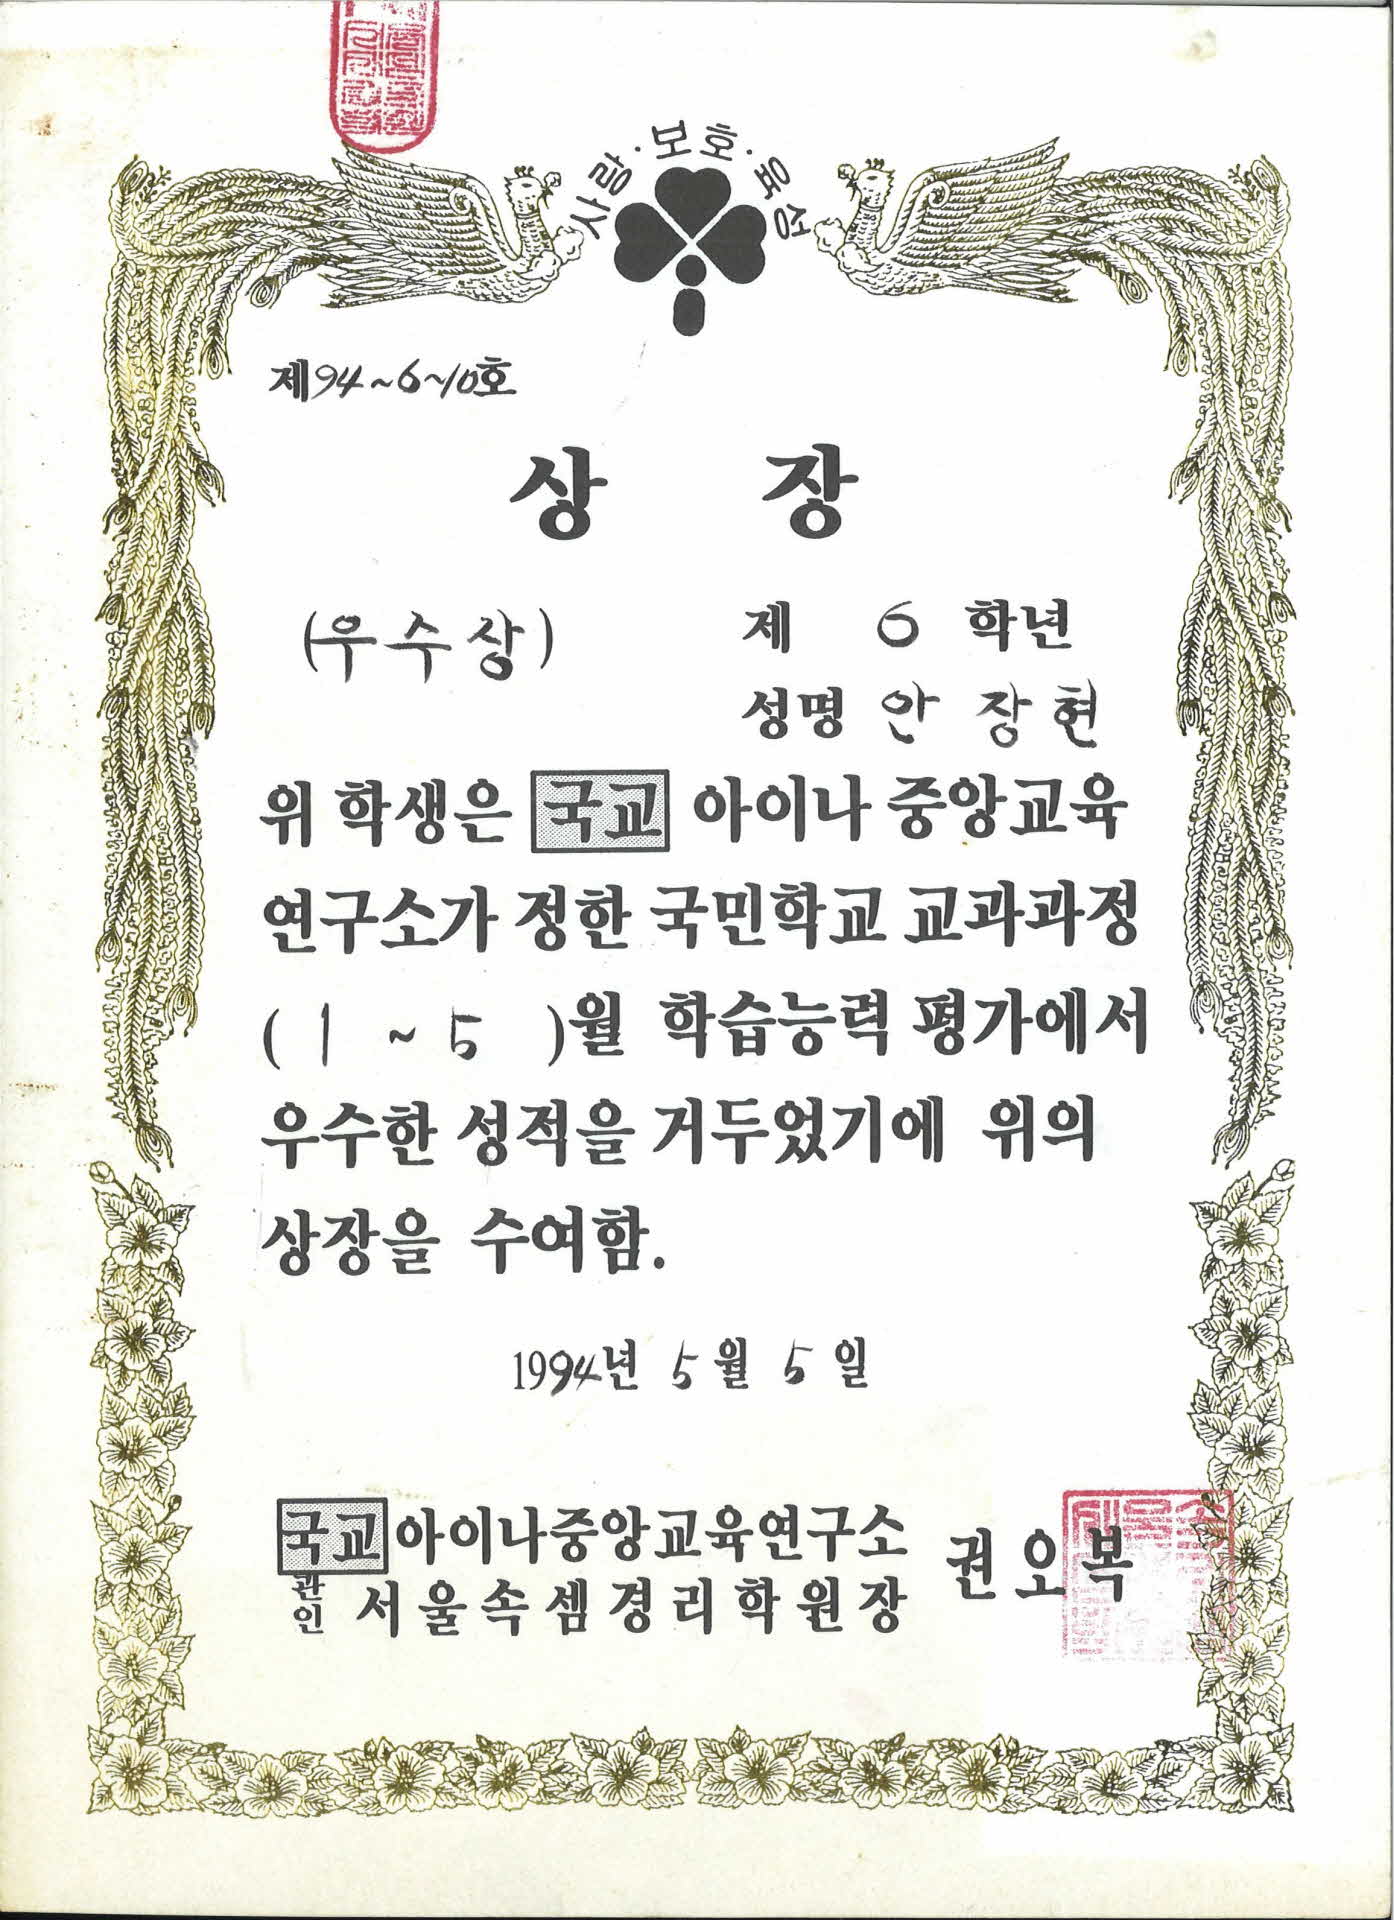 사랑·보호·육성
제94~6~10호
상 장
(우수상)
제 6 학년
성명 안 장 현
위 학생은 국교 아이나 중앙교육
연구소가 정한 국민학교 교과과정
( 1 ~ 5 )월 학습능력 평가에서
우수한 성적을 거두었기에 위의
상장을 수여함.
1994년 5월 5일
국교 아이나중앙교육연구소
관인 서울속셈경리학원장
권오복